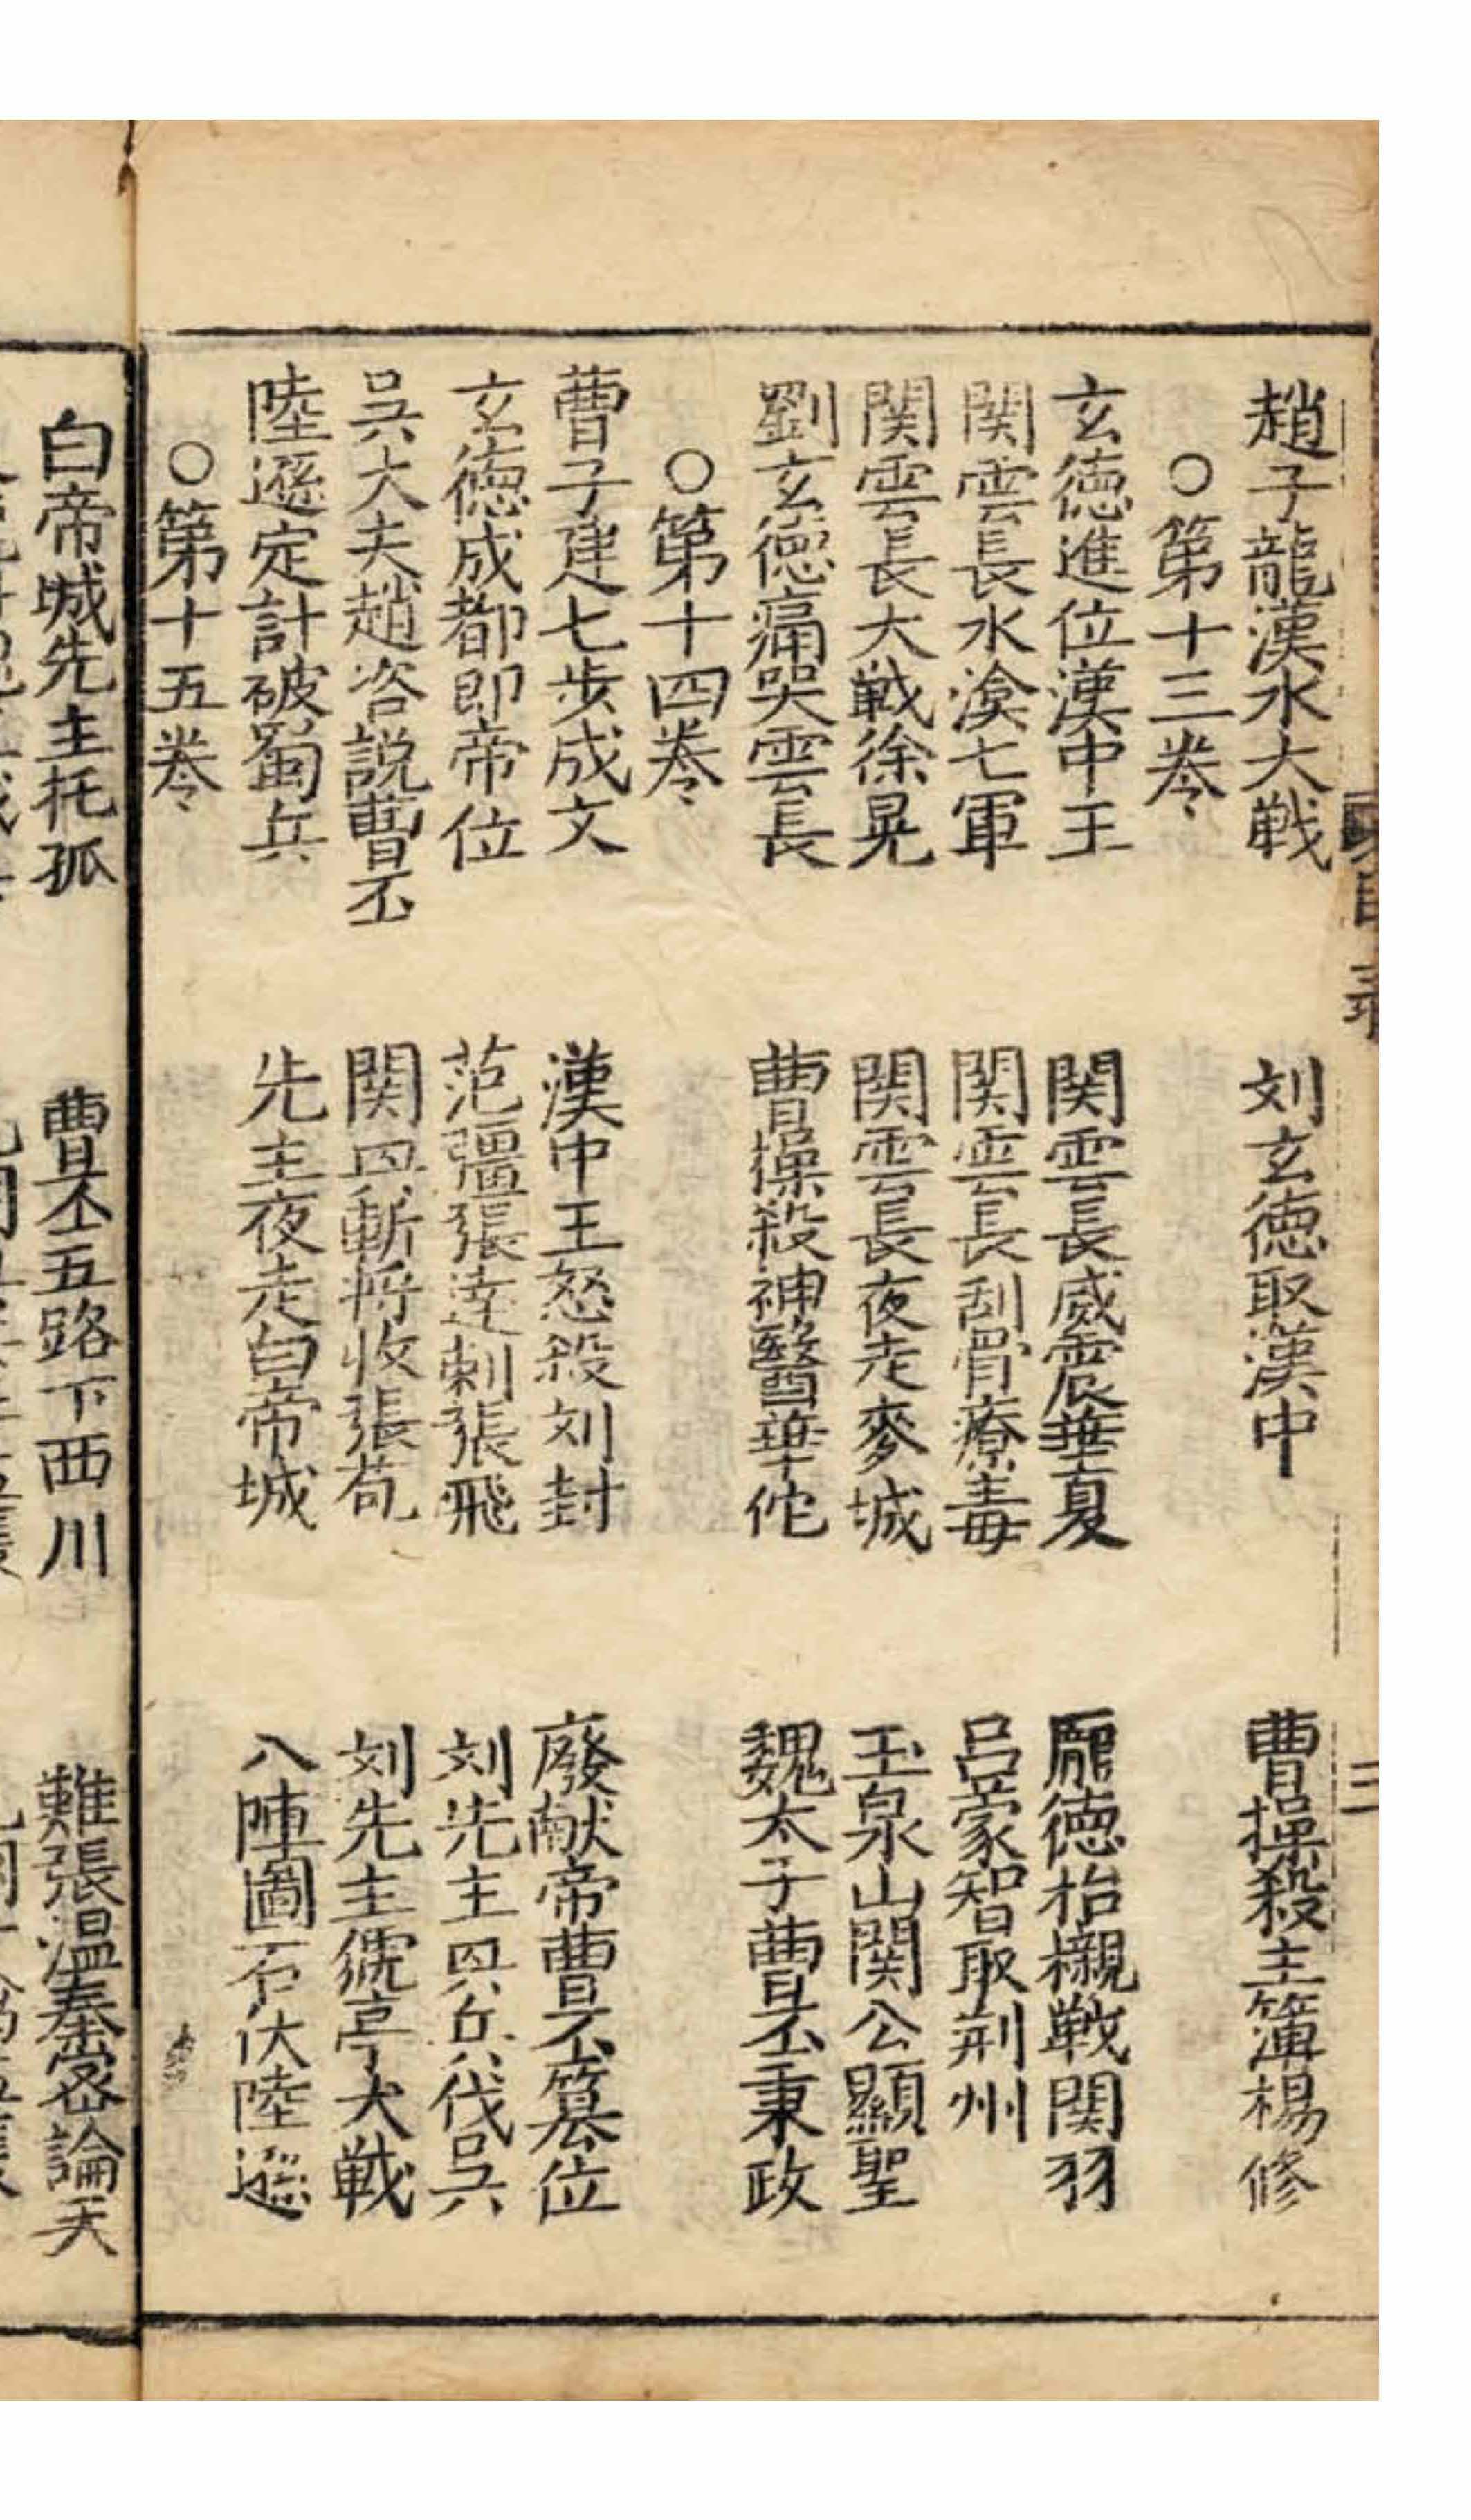 趙子龍漢水大戦　刘玄徳取漢中　曹操殺主簿楊修
○第十三巻
玄徳進位漢中王　関雲長威震華夏　龐徳抬櫬戦関羽
関雲長水渰七軍　関雲長刮骨療毒　吕蒙智取荆州
関雲長大戦徐晃　関雲長夜走麥城　玉泉山関公顯聖
劉玄徳痛哭雲長　曹操殺神醫華佗　魏太子曹丕秉政
○第十四巻
曹子建七步成文　漢中王怒殺刘封　廢献帝曹丕篡位
玄徳成都即帝位　范彊張達刺張飛　刘先主興兵伐吳
吳大夫趙咨說曹丕　関興斬将收張苞　刘先主猇亭大戦
陸遜定計破蜀兵　先主夜走白帝城　八陣圖石伏陸遜
○第十五巻
白帝城先主托孤　曹丕五路下西川　難張温秦宓論天